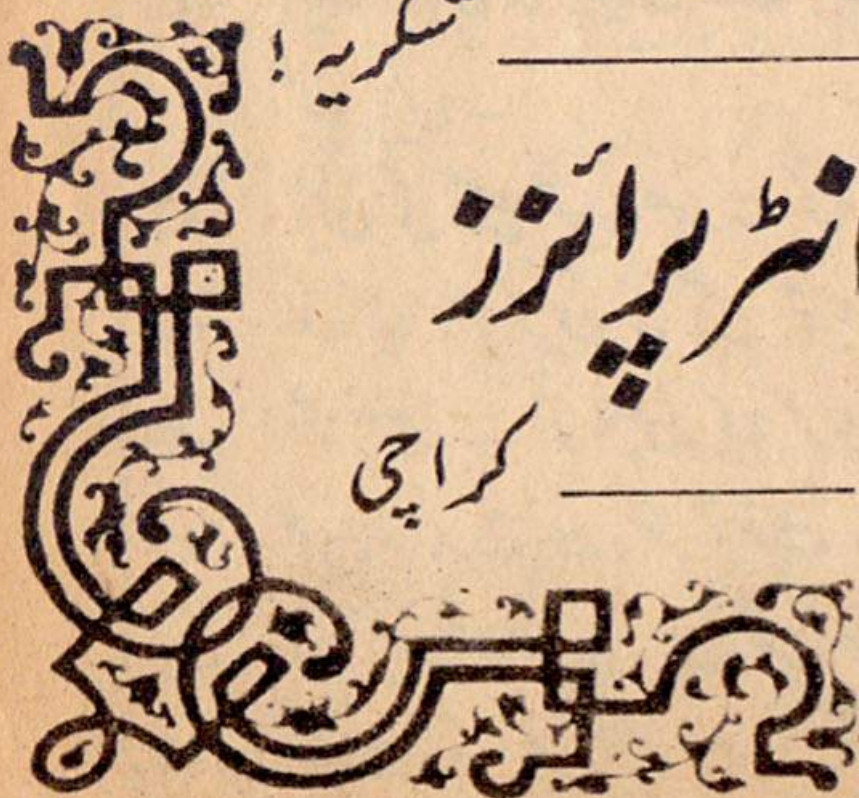 شکریہ !
انٹرپرائزز
کراچی